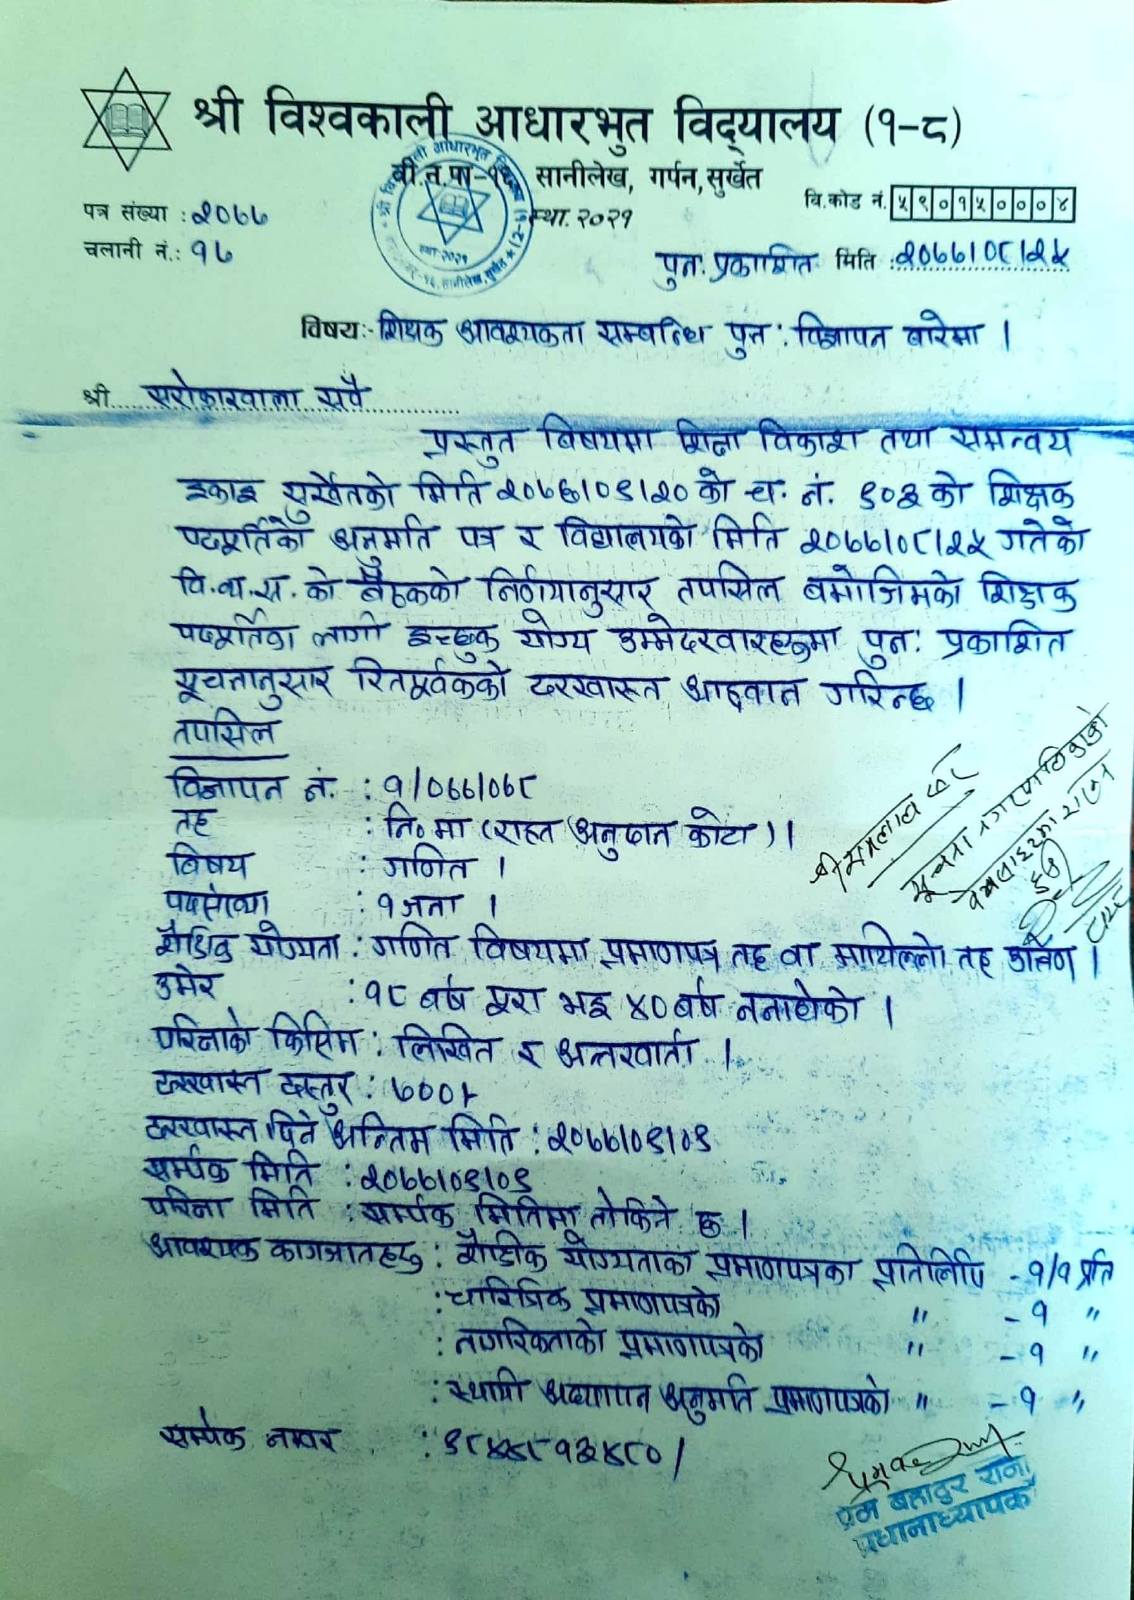 श्री विश्वकाली आधारभुत विद्यालय (१-८)
वी.न.पा-१२ सानीलेख, गर्पन, सुर्खेत
स्था. २०२१
वि.कोड नं. ५९०१५०००४
पत्र संख्या : २०७७
चलानी नं.: १७
पुनः प्रकाशित मिति : २०७७।०८।२५
विषय:- शिक्षक आवश्यकता सम्बन्धि पुन: विज्ञापन बारेमा ।
श्री सरोकारवाला सबै
प्रस्तुत विषयमा शिक्षा विकाश तथा समन्वय
इकाइ सुर्खेतको मिति २०७६।०९।२० को च. नं. ९०३ को शिक्षक
पदपूर्तिको अनुमति पत्र र विद्यालयको मिति २०७७।०८।२५ गतेको
वि.व्य.स. को बैठकको निर्णयानुसार तपसिल बमोजिमको शिक्षक
पदपूर्तिका लागी इच्छुक योग्य उम्मेदरवारहरुमा पुन: प्रकाशित
सूचनानुसार रितपूर्वकको दरखास्त आह्वान गरिन्छ ।
तपसिल
विज्ञापन नं. : १/०७७/०७८
तह : नि० मा (राहत अनुदान कोटा) ।
विषय : गणित ।
पदसंख्या : १ जना ।
शैक्षिक योग्यता : गणित विषयमा प्रमाणपत्र तह वा माथिल्लो तह उर्तिण ।
उमेर : १८ वर्ष पूरा भइ ४० वर्ष ननाघेको ।
परिक्षाको किसिम : लिखित र अन्तरवार्ता ।
दरखास्त दस्तुर : ७००।-
दरखास्त दिने अन्तिम मिति : २०७७।०९।०९
सर्म्पक मिति : २०७७।०९।०९
परिक्षा मिति : सर्म्पक मितिमा तोकिने छ ।
आवश्यक कागजातहरु : शैक्षिक योग्यताका प्रमाणपत्रका प्रतिलिपि - १/१ प्रति
: चारित्रिक प्रमाणपत्रको " - १ "
: नागरिकताको प्रमाणपत्रको " - १ "
: स्थायी अध्यापन अनुमति प्रमाणपत्रको " - १ "
सर्म्पक नम्वर : ९८४८१३४८०।
प्रेम बहादुर राना
प्रधानाध्यापक